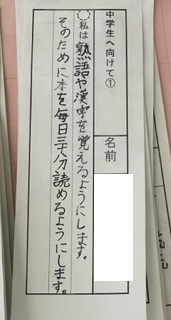 中学生へ向けて①
名前
私は熟語や漢字を覚えるようにします。
そのために本を毎日三十分読めるようにします。